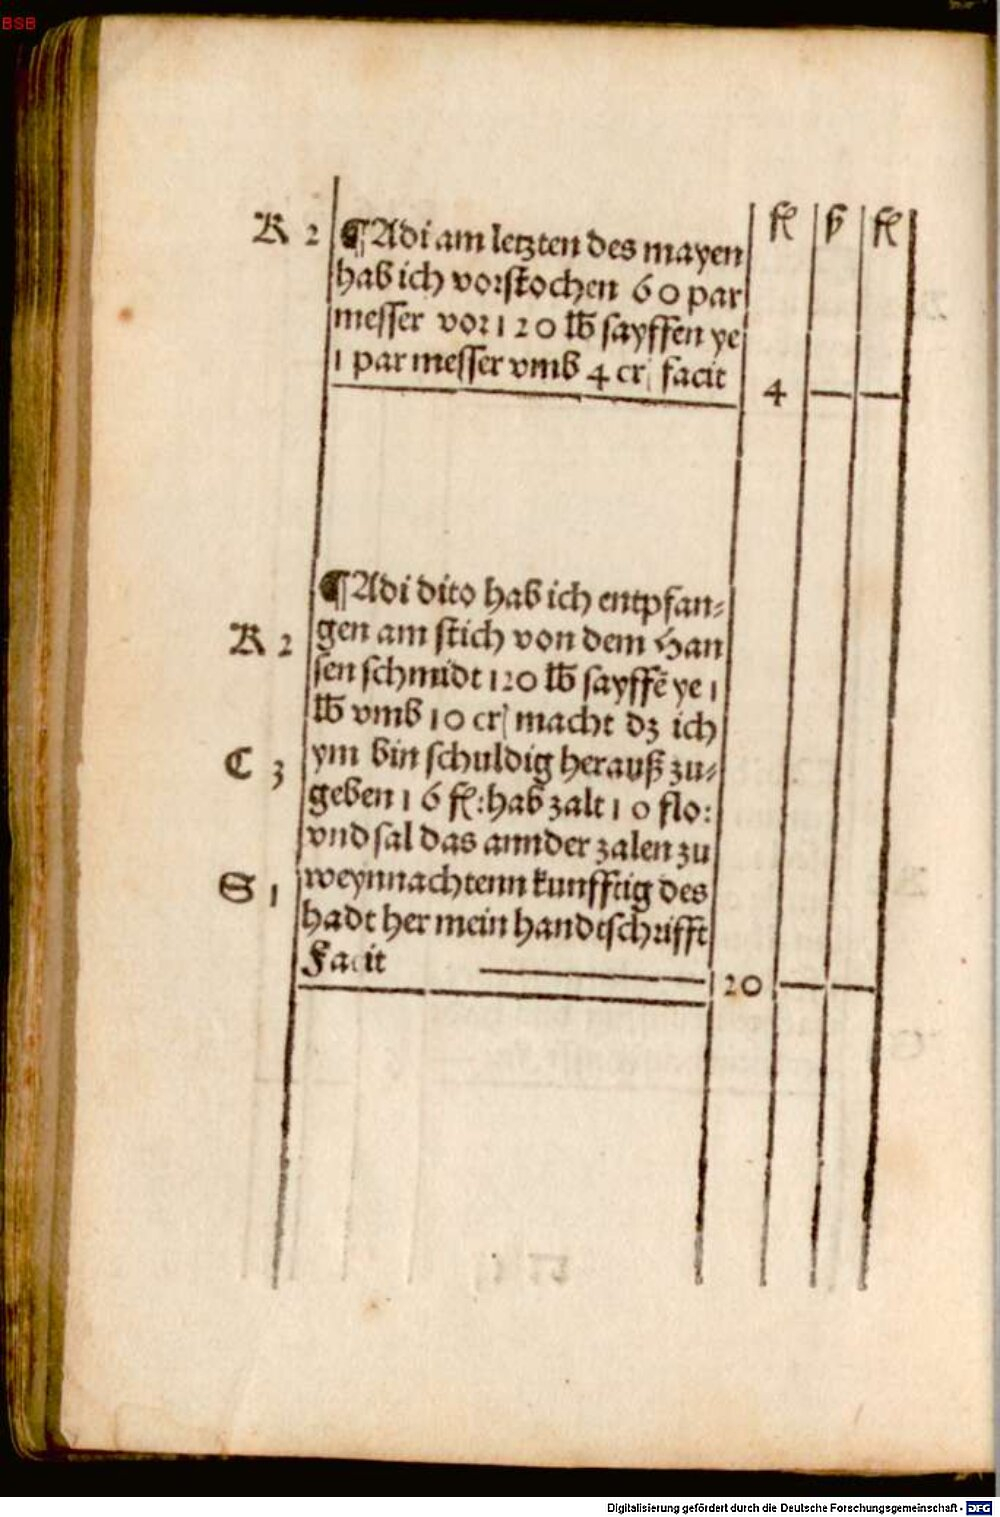 BSB
fl ꝑ fl
K 2 ¶Adi am letzten des mayen
hab ich vorstochen 60 par
messer vor 120 lb sayffen ye
1 par messer vmb 4 cr facit 4 — —
¶Adi dito hab ich entpfan-
K 2 gen am stich von dem Han
sen schmidt 120 lb sayffē ye 1
lb vmb 10 cr macht dz ich
C 3 ym bin schuldig herauß zu-
geben 16 fl: hab zalt 10 flo:
vnd sal das annder zalen zu
S 1 weynnachtenn kunfftig des
hadt her mein handtschrifft
Facit 20 — —
Digitalisierung gefördert durch die Deutsche Forschungsgemeinschaft - DFG